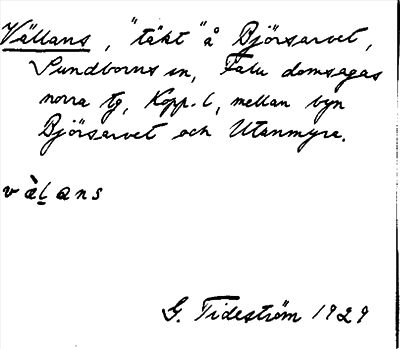 Vällans, "täkt" å Björsarvet,
Sundborns sn, Falu domsagas
norra tg, Kopp. l, mellan byn
Björsarvet och Utanmyra.
vàlans
G. Tideström 1929